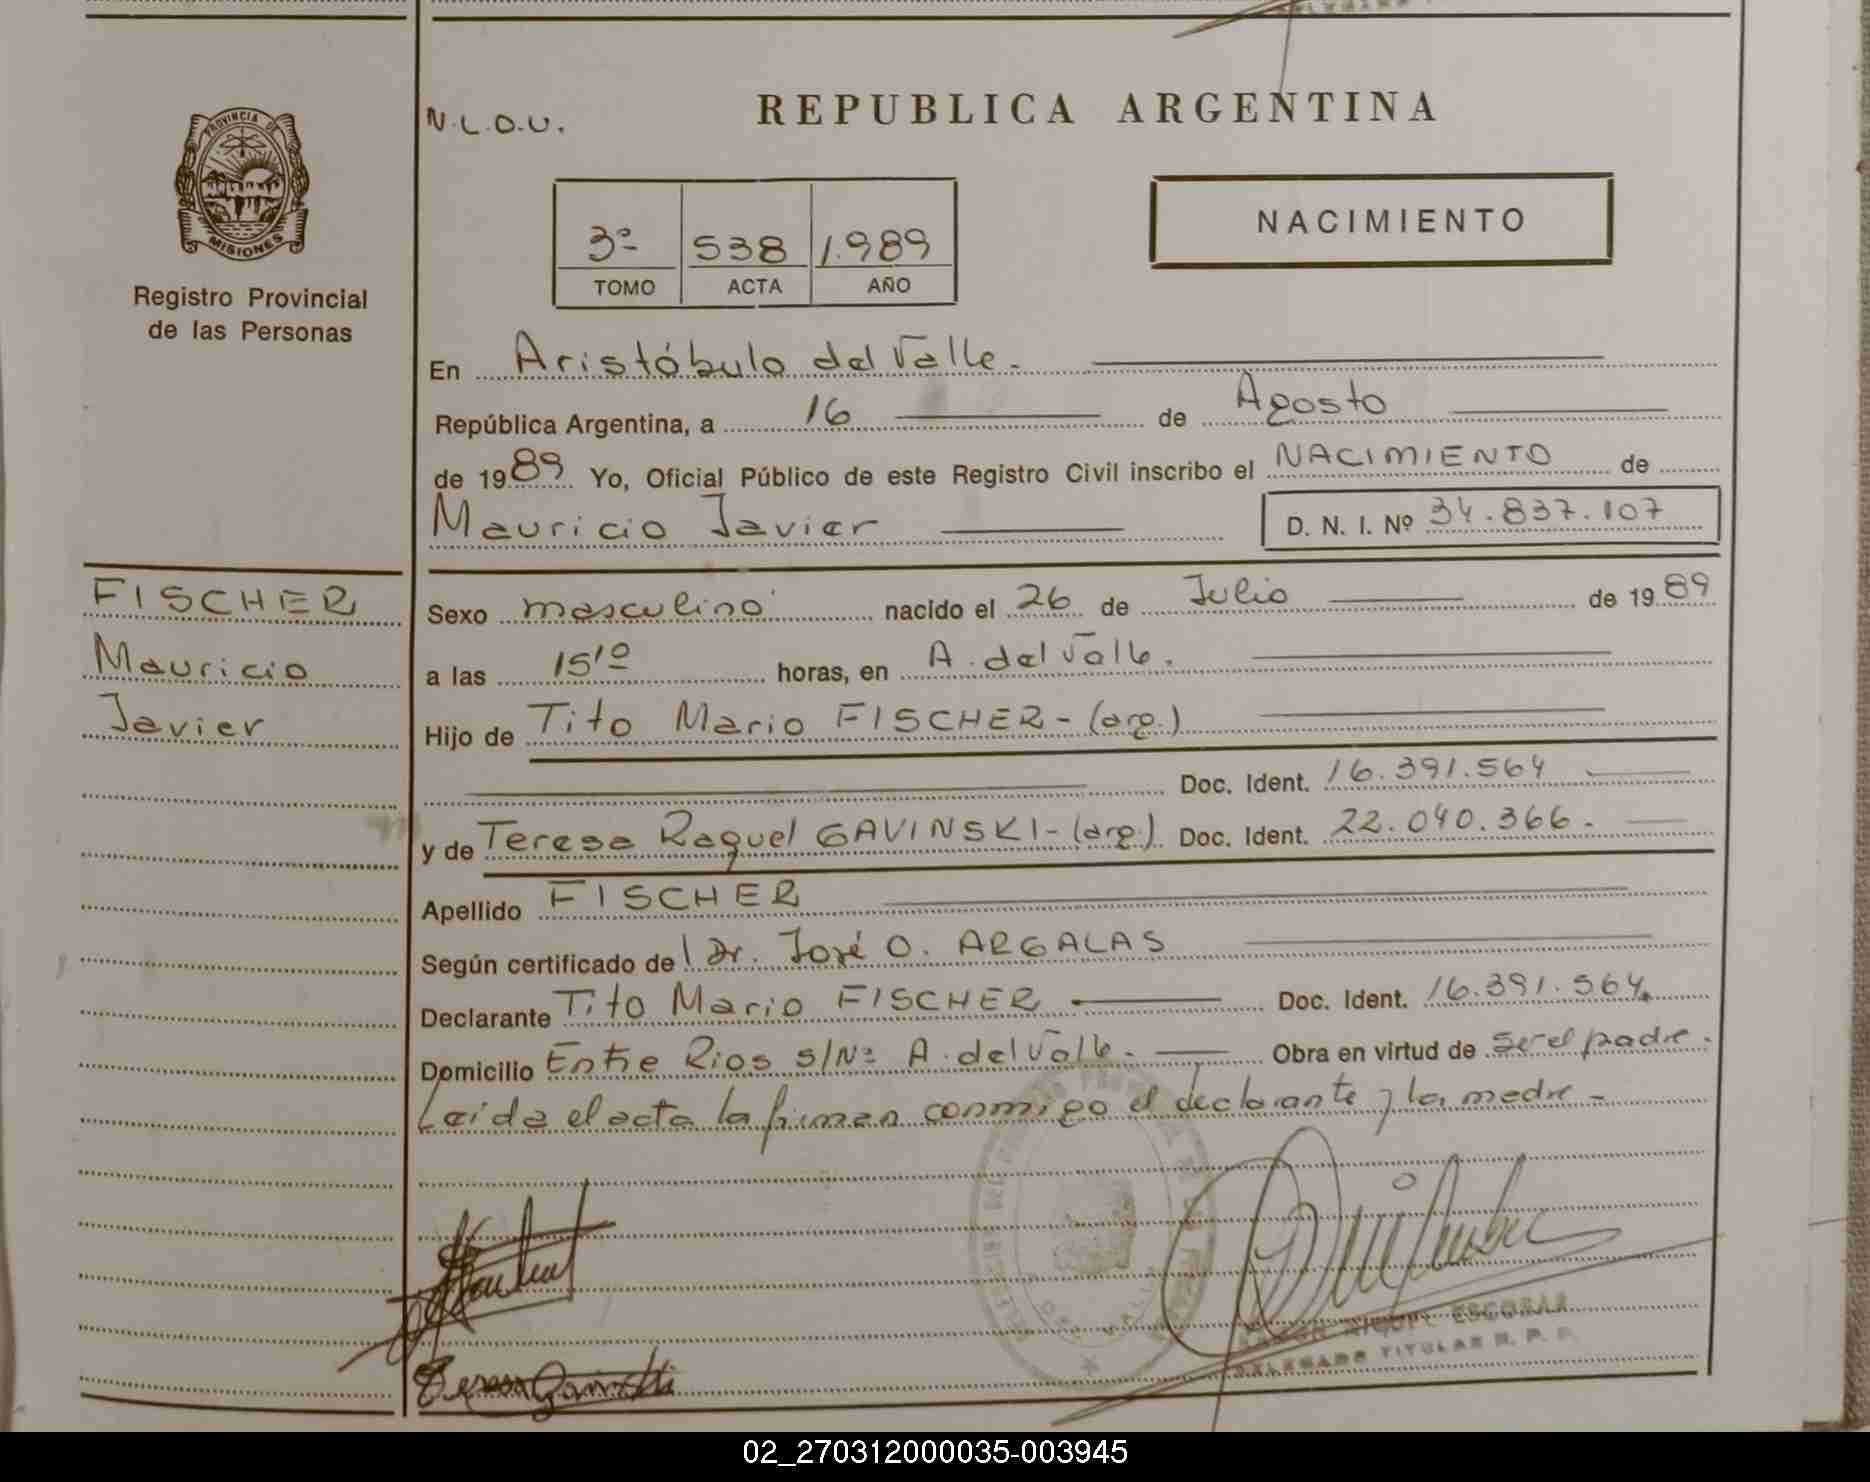 PROVINCIA DE
MISIONES
Registro Provincial
de las Personas
N.L.O.U.
REPUBLICA ARGENTINA
NACIMIENTO
3º 538 1.989
TOMO ACTA AÑO
En Aristóbulo del Valle.
República Argentina, a 16 de Agosto
de 1989 Yo, Oficial Público de este Registro Civil inscribo el NACIMIENTO de
Mauricio Javier D. N. I. Nº 34.837.107
FISCHER
Mauricio
Javier
Sexo masculino nacido el 26 de Julio de 1989
a las 15,10 horas, en A. del Valle.
Hijo de Tito Mario FISCHER - (arg.)
Doc. Ident. 16.391.564
y de Teresa Raquel GAVINSKI - (arg.) Doc. Ident. 22.040.366.
Apellido FISCHER
Según certificado del Dr. José O. ARGALAS
Declarante Tito Mario FISCHER Doc. Ident. 16.391.564.
Domicilio Entre Rios s/Nº A. del Valle. Obra en virtud de ser el padre.
Leida el acta la firman conmigo el declarante y la madre -
Teresa Gavinski
ESCOBAR
DELEGADO TITULAR R. P. P.
02_270312000035-003945